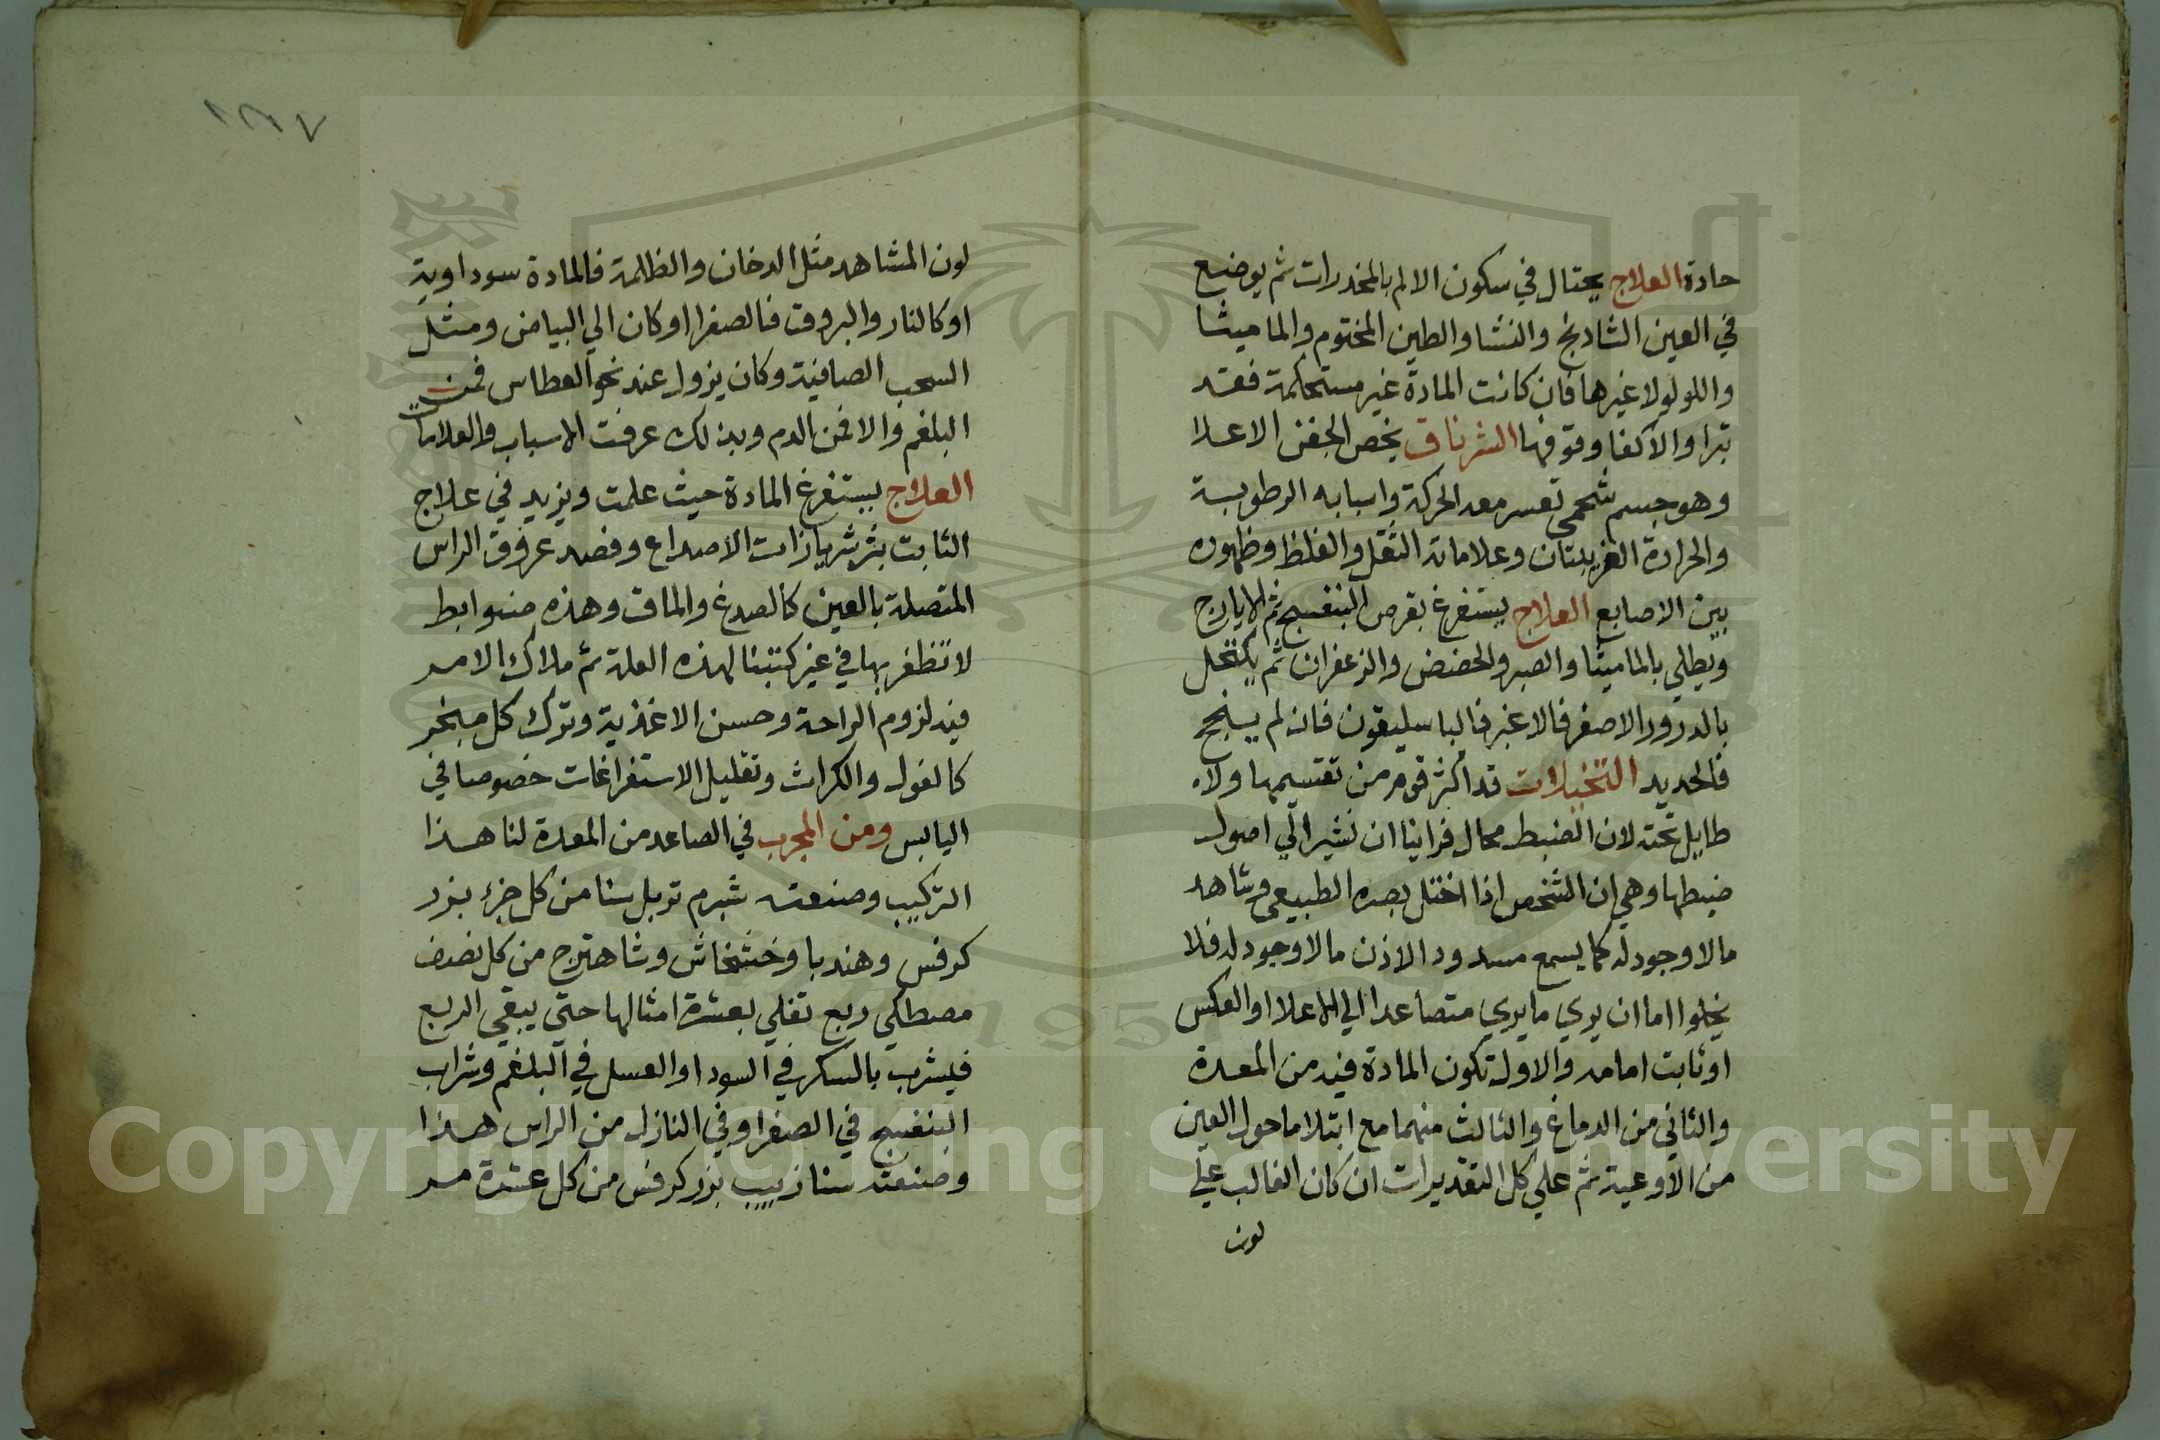 حادة العلاج يحتال في سكون الالم بالمخدرات ثم يوضع
في العين الشادنج والنشا والطين المختوم والماميثا
واللولو لا غيرها فان كانت المادة غير مستحكمة فقد
تبرا والا كفا وقوفها الشرناق يخص الجفن الاعلا
وهو جسم شحمي تعسر معه الحركة واسبابه الرطوبة
والحرارة الغريبتان وعلاماته الثقل والغلظ وظهوره
بين الاصابع العلاج يستفرغ بقرص البنفسج ثم الايارج
ويطلي بالماميثا والصبر والحضض والزعفران ثم يكتحل
بالدرور الاصفر فالاغبر فالباسليقون فان لم ينجح
فالحديد التخيلات قد اكثر قوم من تقسيمها ولا
طايل تحته لان الضبط محال فراينا ان نشير الي اصول
ضبطها وهي ان الشخص اذا اختل بصره الطبيعي وشاهد
مالا وجود له كما يسمع مسدود الاذن مالا وجود له فلا
يخلوا اما ان يري ما يري متصاعدا الي الاعلا او العكس
او ثابت امامه والاول تكون المادة فيه من المعدة
والثاني من الدماغ والثالث منهما مع ابتلا ما حول العين
من الاوعية ثم علي كل التقديرات ان كان الغالب علي
لون
١٨٧
لون المشاهد مثل الدخان والظلمة فالمادة سوداوية
او كالنار والبروق فالصفرا او كان الي البياض ومثل
السحب الصافية وكان يزول عند نحو العطاس فمن
البلغم والا فمن الدم وبذلك عرفت الاسباب والعلامات
العلاج يستفرغ المادة حيث علمت ويزيد في علاج
الثابت بتر شريانات الاصداع وفصد عروق الراس
المتصلة بالعين كالصدغ والماق وهذه ضوابط
لا تظفر بها في غير كتبنا لهذه العلة ثم ملاك الامر
فيه لزوم الراحة وحسن الاغذية وترك كل مبخر
كالفول والكراث وتقليل الاستفراغات خصوصا في
اليابس ومن المجرب في الصاعد من المعدة لنا هذا
التركيب وصنعته شبرم توبل سنا من كل جزء بزر
كرفس وهندبا وخشخاش وشاهترج من كل نصف
مصطكي ربع تغلي بعشرة امثالها حتي يبقي الربع
فيشرب بالسكر في السودا والعسل في البلغم وشراب
البنفسج في الصفرا وفي النازل من الراس هذا
وصنعته سنا زبيب بزر كرفس من كل عشرة مر
Copyright © King Saud University
1957